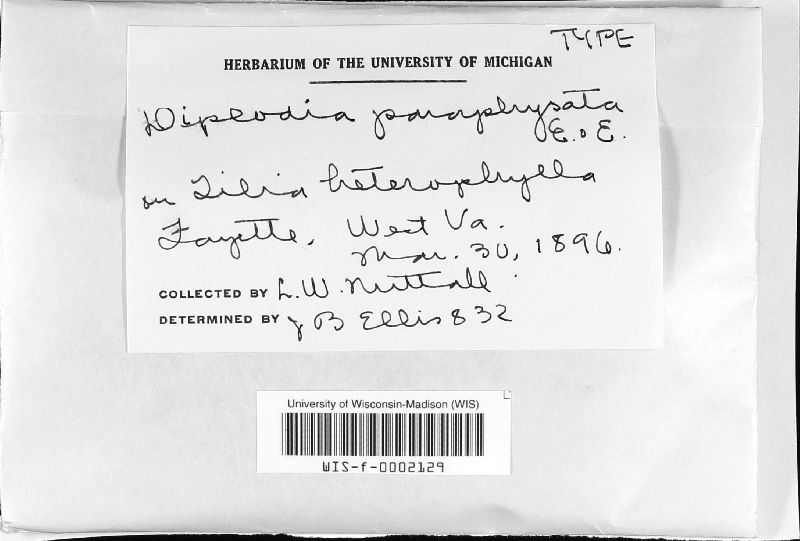 TYPE
HERBARIUM OF THE UNIVERSITY OF MICHIGAN
Diplodia paraphysata
E. & E.
on Tilia heterophylla
Fayette, West Va.
Mar. 30, 1896.
COLLECTED BY L. W. Nuttall
DETERMINED BY J B Ellis 832
University of Wisconsin-Madison (WIS)
WIS-f-0002129